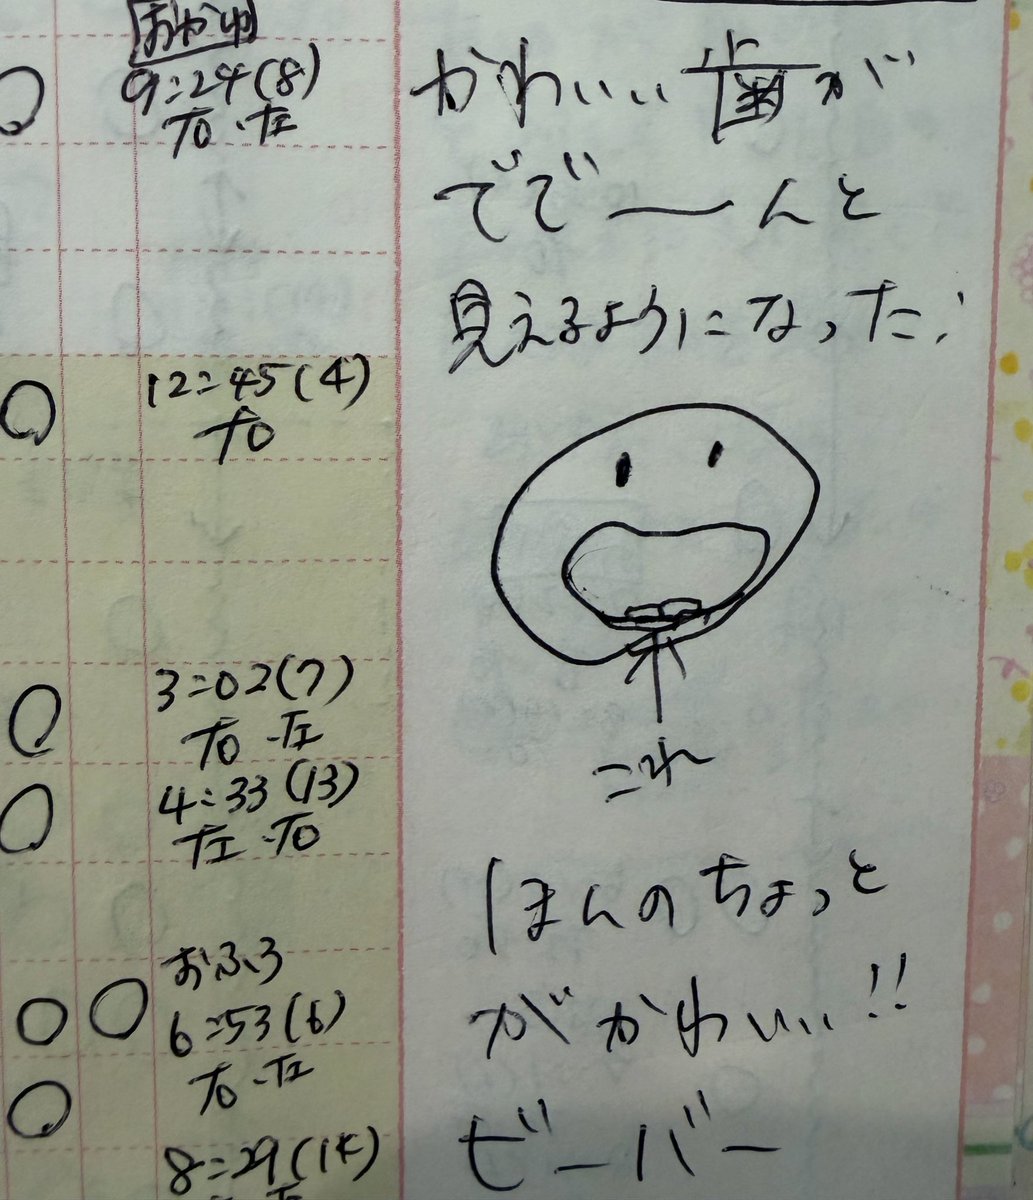 おかゆ
9:24(8)
右・左
12:45(4)
右
3:02(7)
右・左
4:33(13)
左・右
おふろ
6:53(6)
右・左
8:29(14)
かわいい歯が
でで〜んと
見えるようになった!
これ
ほんのちょっと
がかわいい!!
ビーバー